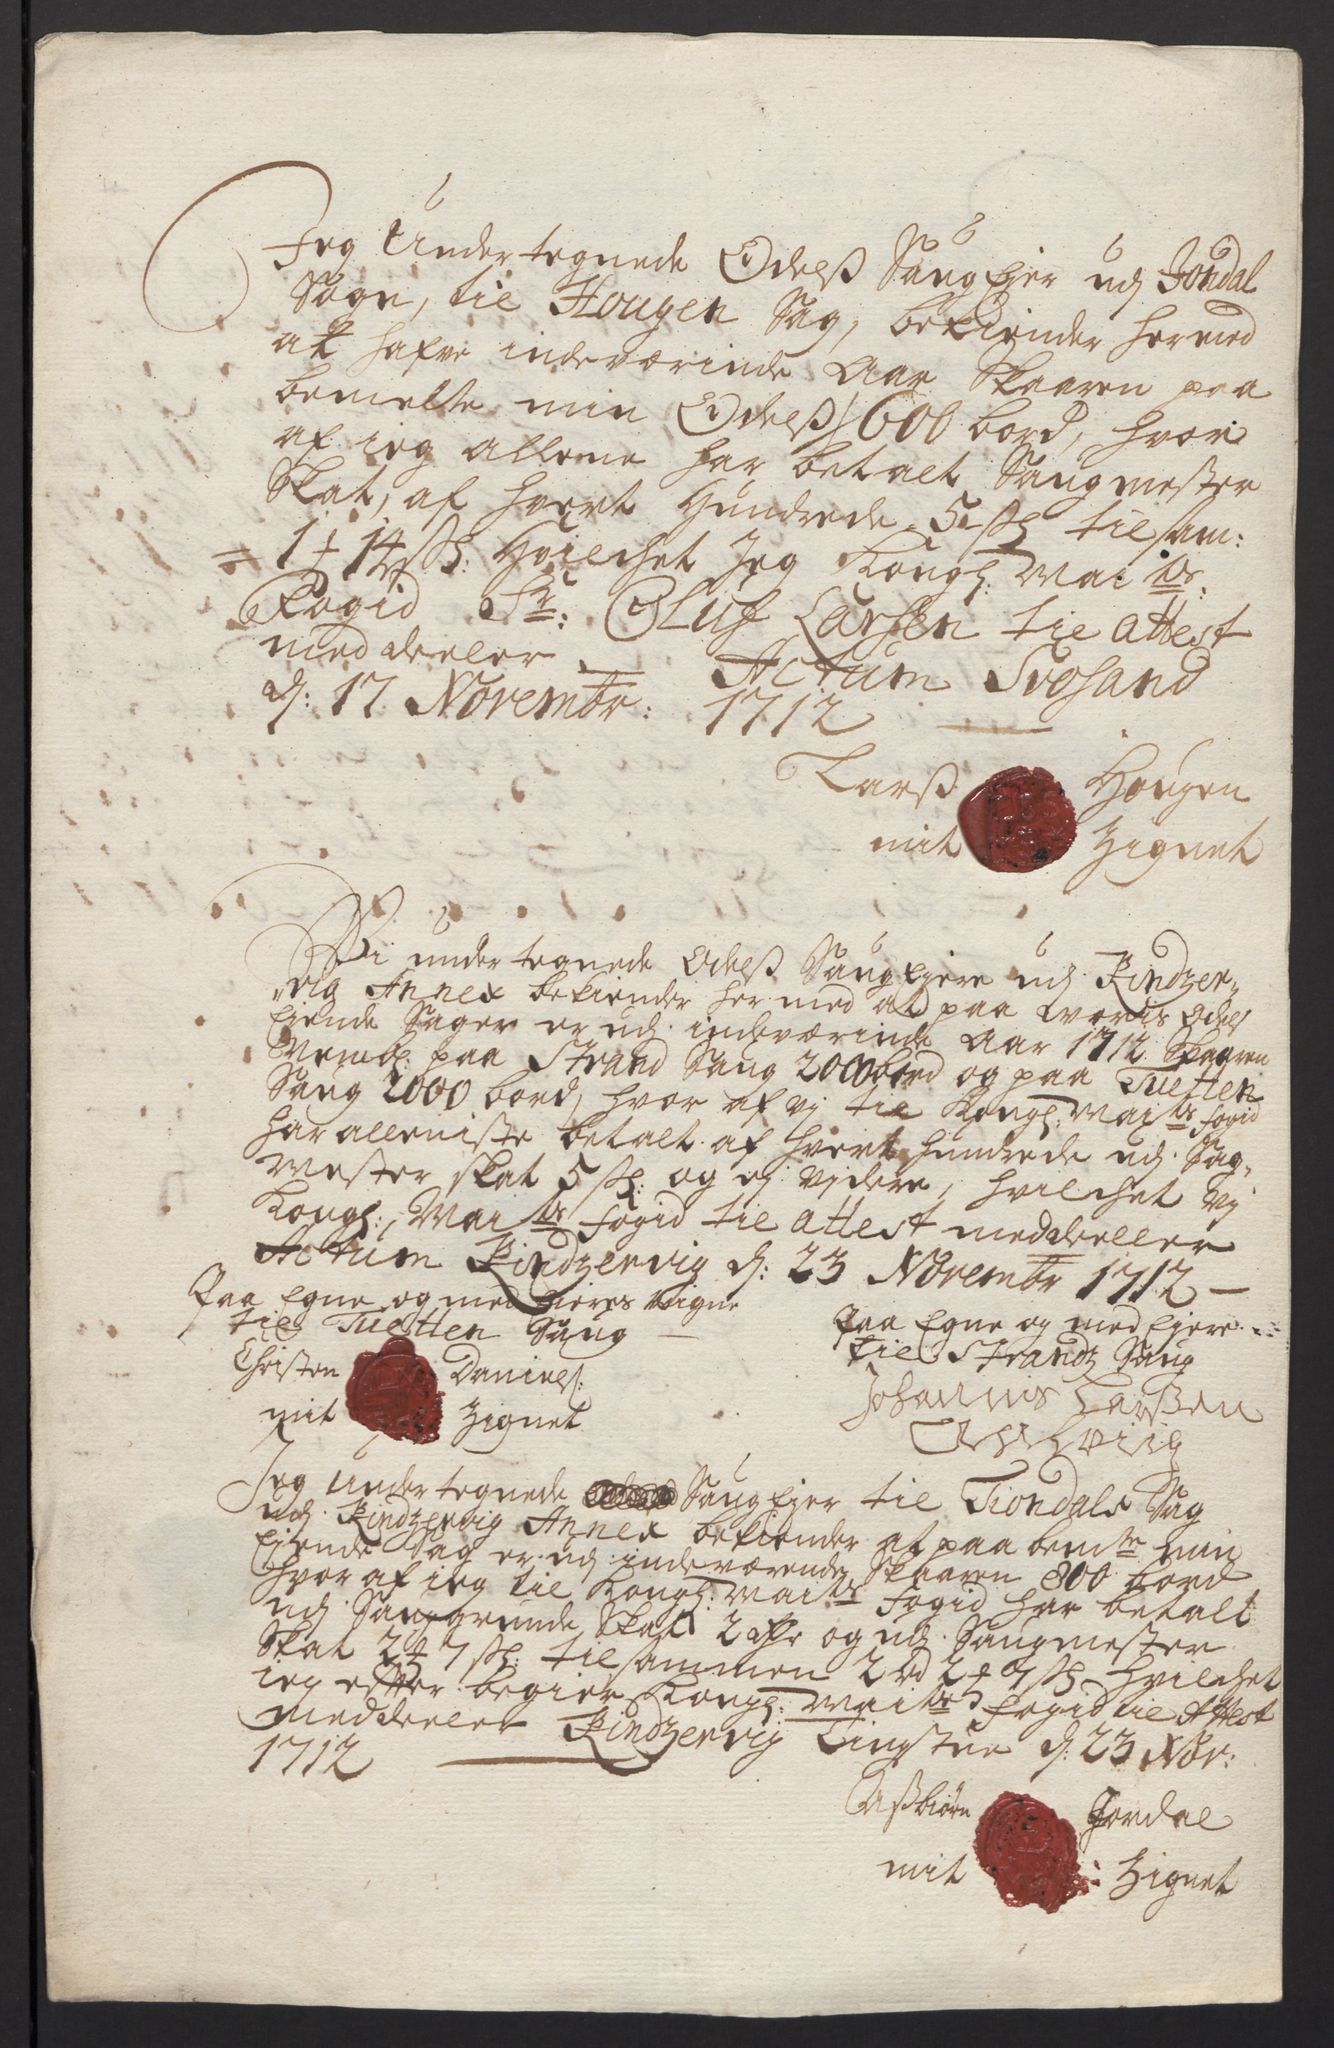 Jeg Under tegnede Odelß Saugejer udj Jondal
Sogn, til Hougen Sag, bekiender hermed
at hafve indeværinde Aar Skaaren paa
bemelte min Odelß 600 bord, hvor
af ieg allene har betalt Saugmester
Skat, af hvert Hundrede 5 sk tilsam:
= 1 ƚ 14 sk: Hvilchet Jeg Kongl: Mai ts:
Fogid Sr: Oluf Larsen til Attest
meddeeler Actum Svosand
d: 17 Novembr: 1712
Larß Hougen
mit Zignet
Vi under tegnede Odelß Saugejere udj Kindzer„
„vig Annex bekiender her med at paa woris Odelß
Ejende Sager er udj indeværinde Aar 1712 Skaaren
Nembl. paa Strand Saug 2000 bord og paa Tuetten
Saug 2000 bord, hvor af vj til Kongl: Mai ts fogid
har alleniste betalt af hvert hundrede udj Sag„
mester skat 5 sk: og ej videre, hvilchet vj
Kongl: Mai ts fogid til attest meddeeller
Actum Kindzervig d: 23 Novembr 1712 —
Paa Egne og med Ejeres veigne
til Tuetten Saug
Christen Daniels:
mit Zignet
Paa Egne og med Ejere
til Strandz Saug
Johannis Larßen
Jeg Under tegnede Saugejer til Tiondals Sag
udj Kindzervig Annex bekiender at paa bemte min
Ejende Sag er udj indeværende Skaaren 800 bord
hvor af ieg til Kongl: Mai ts fogid har betalt
udj Sauggrunde Skat 2 rdr og udj Saugmester
Skat 2 ƚ 7 sk: tilsammen 2 rd 2 ƚ 7 sk hvilchet
ieg efter begier Kongl: Mai ts fogid til Attest
meddeeler Kindzervig Tingstue d: 23 Nov:
1712
Aßbiørn Jordal
mit Zignet